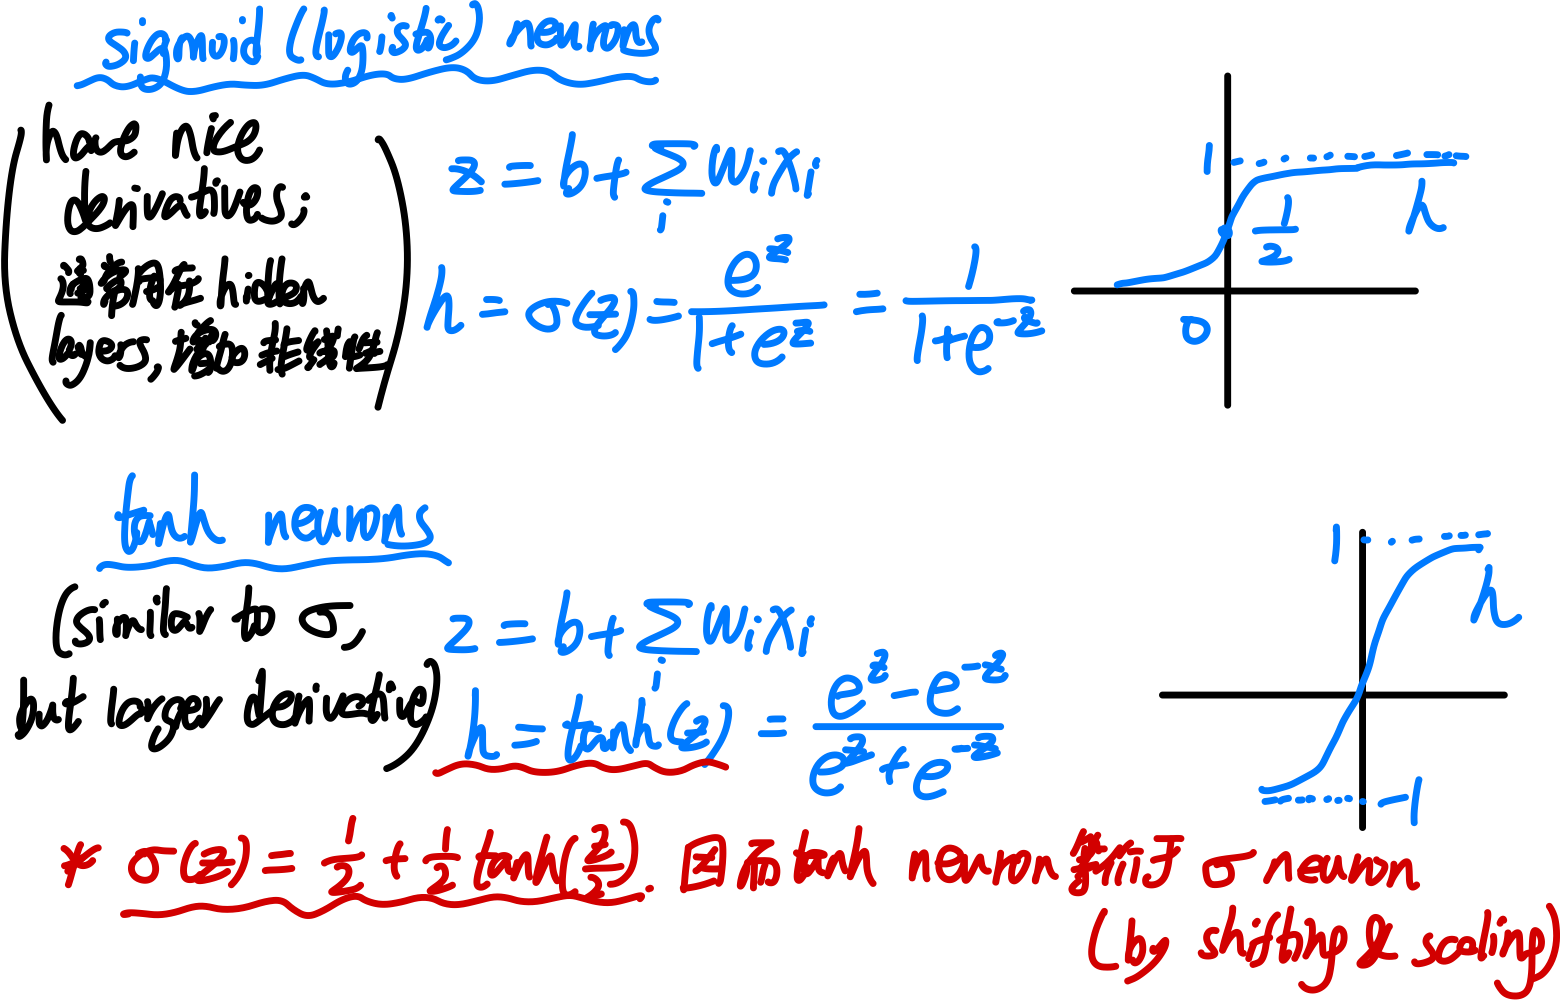 sigmoid (logistic) neurons
(have nice
derivatives;
通常用在 hidden
layers, 增加非线性)
z = b + ∑_i w_i x_i
h = σ(z) = e^z / (1 + e^z) = 1 / (1 + e^{-z})
1
1/2
h
0
tanh neurons
(similar to σ,
but larger derivative)
z = b + ∑_i w_i x_i
h = tanh(z) = (e^z - e^{-z}) / (e^z + e^{-z})
1
h
-1
* σ(z) = 1/2 + 1/2 tanh(z/2). 因而 tanh neuron 等价于 σ neuron
(by shifting & scaling)